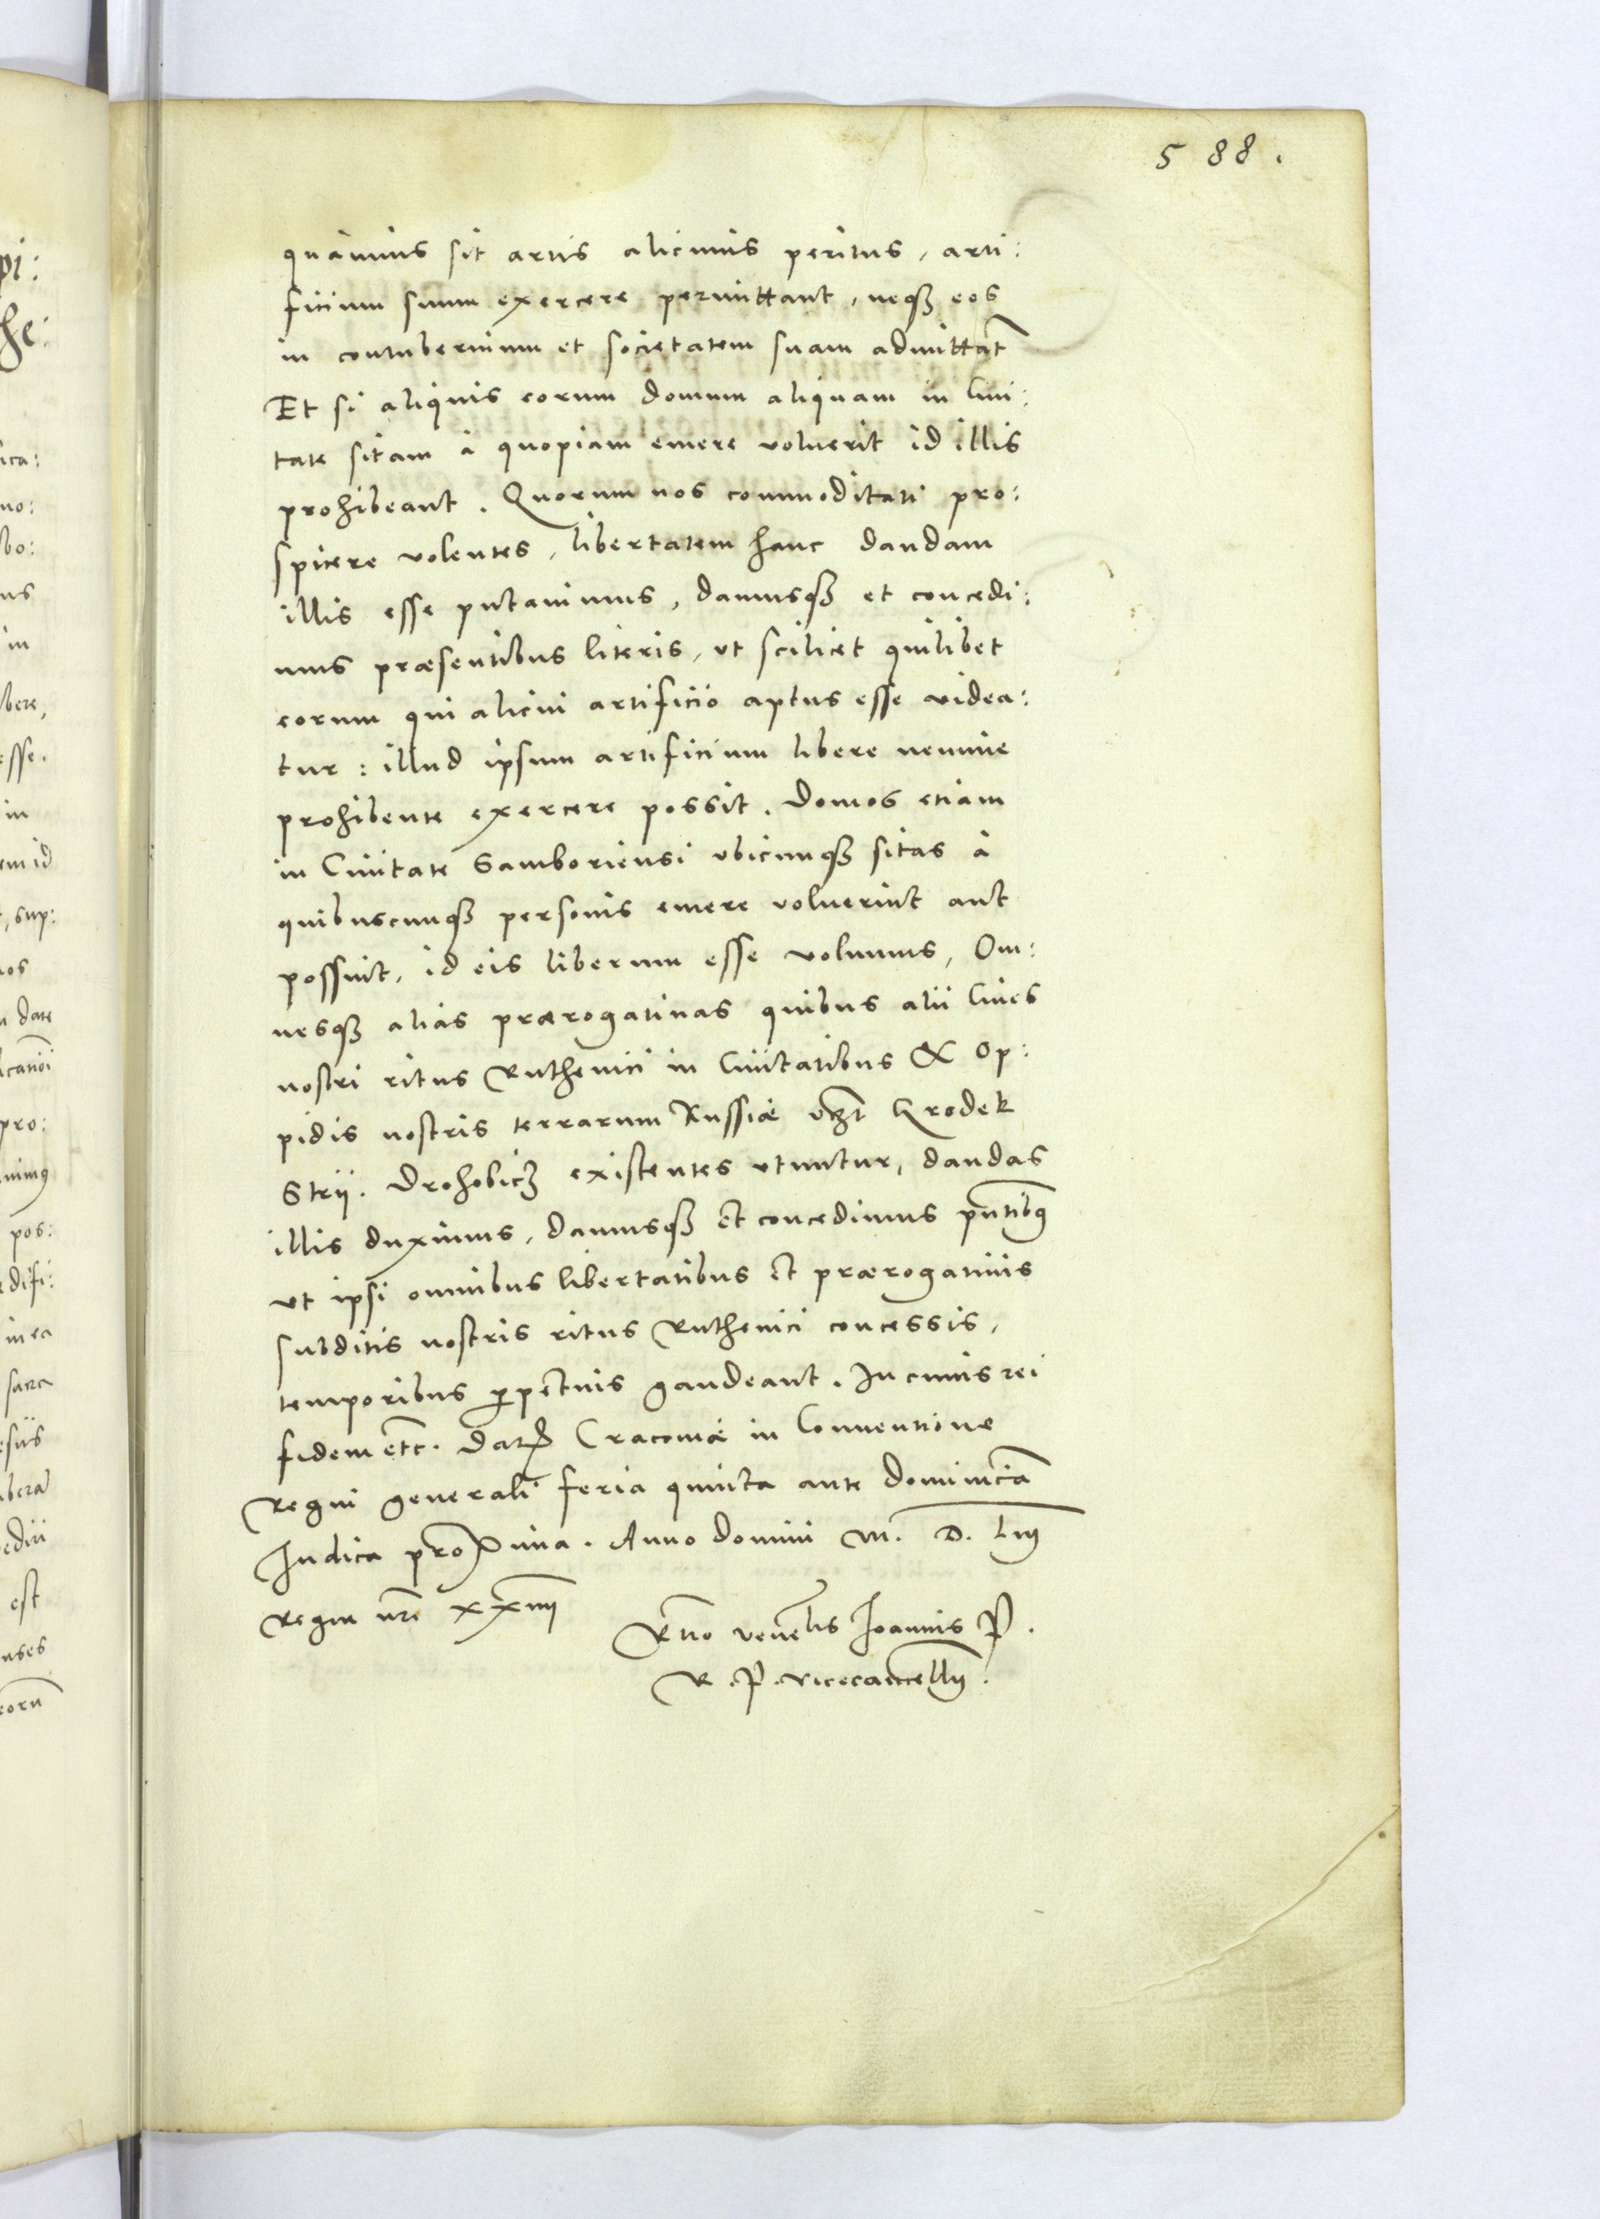 588.
quamuis sit artis alicuius peritus, arti:
ficium suum exercere permittant, neqȝ eos
in contubernium et societatem suam admittāt
Et si aliquis eorum domum aliquam in Ciui:
tate sitam à quopiam emere voluerit id illis
prohibeant. Quorum nos commoditati pro:
spicere volentes, libertatem hanc dandam
illis esse putauimus, damusqȝ et concedi:
mus præsentibus literis, vt scilicet quilibet
eorum qui alicui artificio aptus esse videa:
tur: illud ipsum artificium libere nemine
prohibente exercere possit. Domos etiam
in Ciuitate Samboriensi vbicunqȝ sitas à
quibuscunqȝ personis emere voluerint aut
possint, id eis liberum esse volumus, Om:
nesqȝ alias prærogatiuas quibus alii Ciues
nostri ritus Ruthenici in Ciuitatibus & Op:
pidis nostris terrarum Russiæ vꝫt Grodek
Strij. Drohobicȝ existentes vtuntur, dandas
illis duximus, damusqȝ et concedimus pn̄tibꝰ
vt ipsi omnibus libertatibus et prærogatiuis
subditis nostris ritus Ruthenici concessis,
temporibus ꝑpetuis gaudeant. In cuius rei
fidem etc. Datꝭ Cracouiæ in Conuentione
Regni generali feria quinta ante Dominicā
Iudica proxima. Anno Domini M. D. Liij
Regni nr̄i xxiiij
Rn̄o venelis Ioannis P.
R. P. Vicecancellij.
pi:
he:
ica:
mo:
bo:
us
in
bere,
esse.
in
em id
, sup:
nos
date
cationi
pro:
nimꝰ
pos:
edifi:
in ea
sacra
esiis
edii
est
nses
eorū